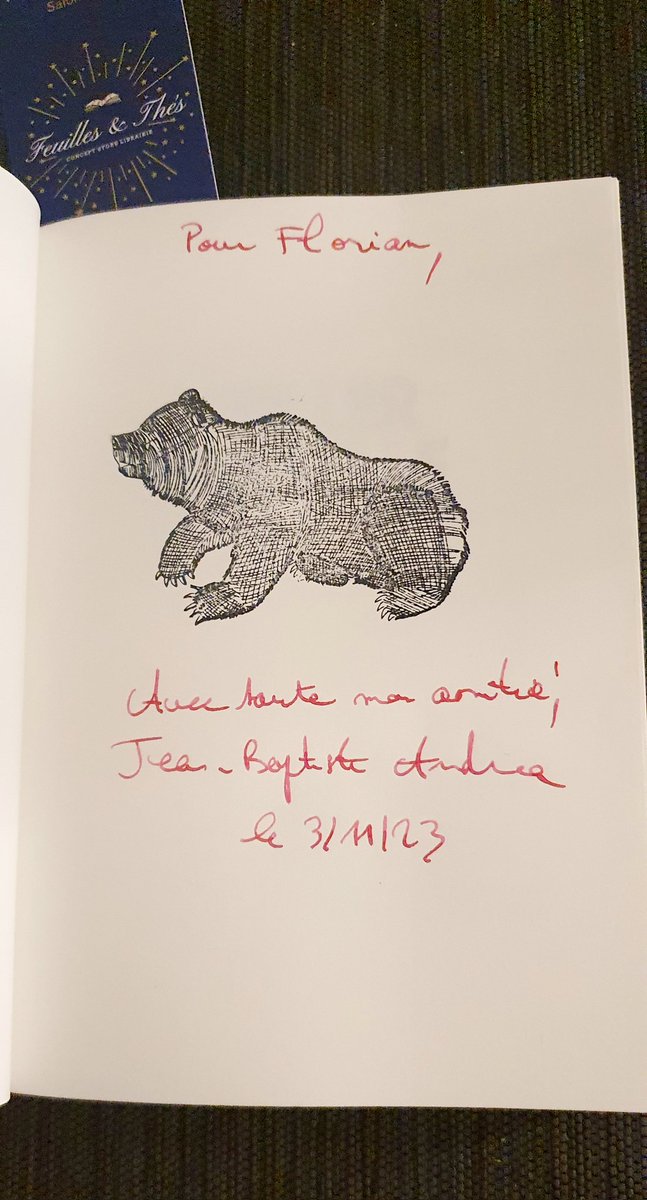 Salon
Feuilles & Thés
CONCEPT STORE LIBRAIRIE
Pour Florian,
Avec toute mon amitié,
Jean-Baptiste Andrea
le 3/11/23